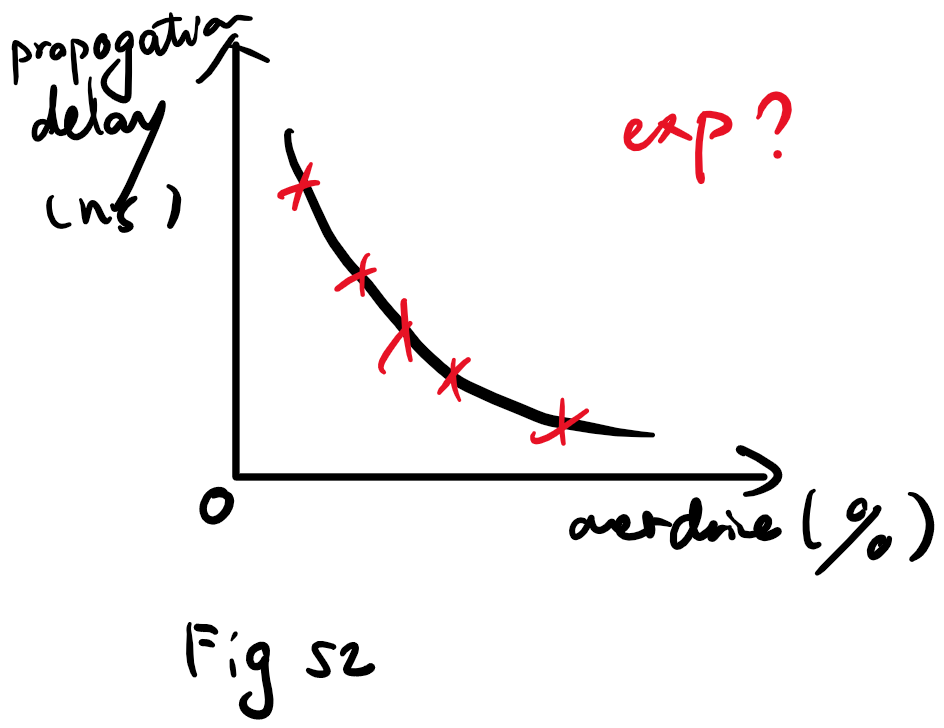 propogation
delay
(ns)
exp?
0
overdrive (%)
Fig 52